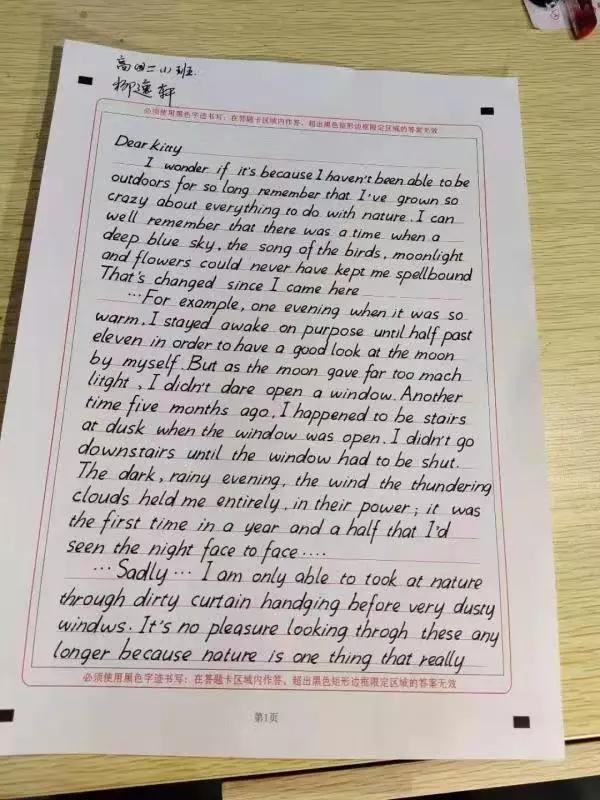 高四二(1)班.
柳逸轩
必须使用黑色字迹书写；在答题卡区域内作答，超出黑色矩形边框限定区域的答案无效
Dear kitty
I wonder if it's because I haven't been able to be
outdoors for so long remember that I've grown so
crazy about everything to do with nature. I can
well remember that there was a time when a
deep blue sky, the song of the birds, moonlight
and flowers could never have kept me spellbound
That's changed since I came here
···For example, one evening when it was so
warm, I stayed awake on purpose until half past
eleven in order to have a good look at the moon
by myself. But as the moon gave far too mach
litght, I didn't dare open a window. Another
time five months ago, I happened to be stairs
at dusk when the window was open. I didn't go
downstairs until the window had to be shut.
The dark, rainy evening, the wind the thundering
clouds held me entirely, in their power; it was
the first time in a year and a half that I'd
seen the night face to face....
···Sadly··· I am only able to took at nature
through dirty curtain handging before very dusty
windws. It's no pleasure looking throgh these any
longer because nature is one thing that really
必须使用黑色字迹书写；在答题卡区域内作答，超出黑色矩形边框限定区域的答案无效
第1页